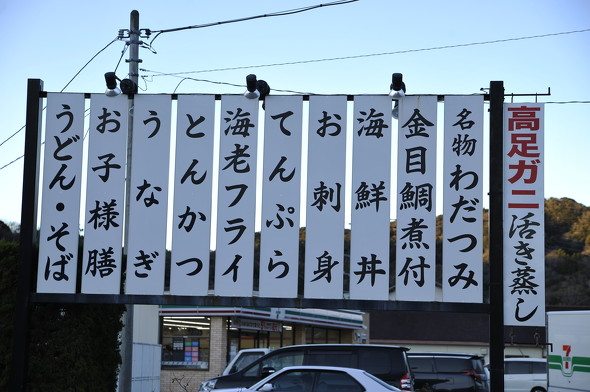 高足ガニ活き蒸し
名物わだつみ
金目鯛煮付
海鮮丼
お刺身
てんぷら
海老フライ
とんかつ
うなぎ
お子様膳
うどん・そば
7